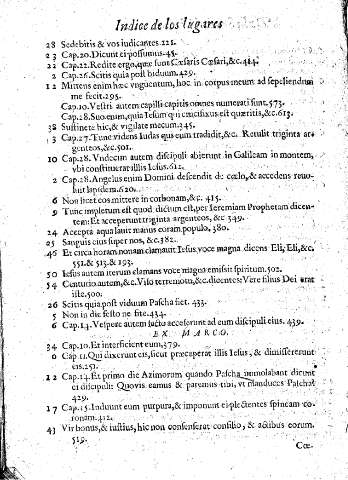 Indice de los lugares
28 Sedebitis & vos iudicantes. 221.
2 3 Cap. 20. Dicunt ei possumus. 45.
22 Cap. 22. Redite ergo, quæ sunt Cæsaris Cæsari, &c. 414.
2 Cap. 26. Scitis quia post biduum. 429.
12 Mittens enim hæc vnguentum, hoc in corpus meum ad sepeliendum
me fecit. 295.
Cap. 10. Vestri autem capilli capitis omnes numerati sunt. 573.
Cap. 28. Suo enim, quia Iesum qui crucifixus est quæritis, &c. 613.
38 Sustinete hic, & vigilate mecum. 345.
3 Cap. 27. Tunc videns Iudas qui eum tradidit, &c. Retulit triginta ar-
genteos, &c. 501.
10 Cap. 28. Vndecim autem discipuli abierunt in Galileam in montem,
vbi constituerat illis Iesus. 612.
2 Cap. 28. Angelus enim Domini descendit de cœlo, & accedens reuo-
luit lapidem. 620.
6 Non licet eos mittere in corbonam, &c. 415.
9 Tunc impletum est quod dictum est, per Ieremiam Prophetam dicen-
tem: Et acceperunt triginta argenteos, &c 349.
24 Accepta aqua lauit manus coram populo. 380.
25 Sanguis eius super nos, &c. 382.
46 Et circa horam nonam clamauit Iesus voce magna dicens Eli, Eli, &c.
551. & 513. & 193.
50 Iesus autem iterum clamans voce magna emisit spiritum. 502.
54 Centurio autem, &c. Viso terremotu, &c. dicentes: Vere filius Dei erat
iste. 500.
26 Scitis quia post viduum Pascha fiet. 433.
5 Non in die festo ne fite. 434.
6 Cap. 14. Vespere autem facto accesserunt ad eum discipuli eius. 439.
EX MARCO.
34 Cap. 10. Et interficient eum, 379.
6 Cap. 11. Qui dixerunt eis, sicut præceperat illis Iesus, & dimisserunt
eis. 251.
12 Cap. 14. Et primo die Azimorum quando Pascha immolabant dicunt
ei discipuli: Quo vis eamus & paremus tibi, vt manduces Pascha?
429.
17 Cap. 15. Induunt eum purpura, & imponunt ei plectentes spineam co-
ronam. 412.
43 Vir bonus, & iustius, hic non consenserat consilio, & actibus eorum.
519.
Cœ-